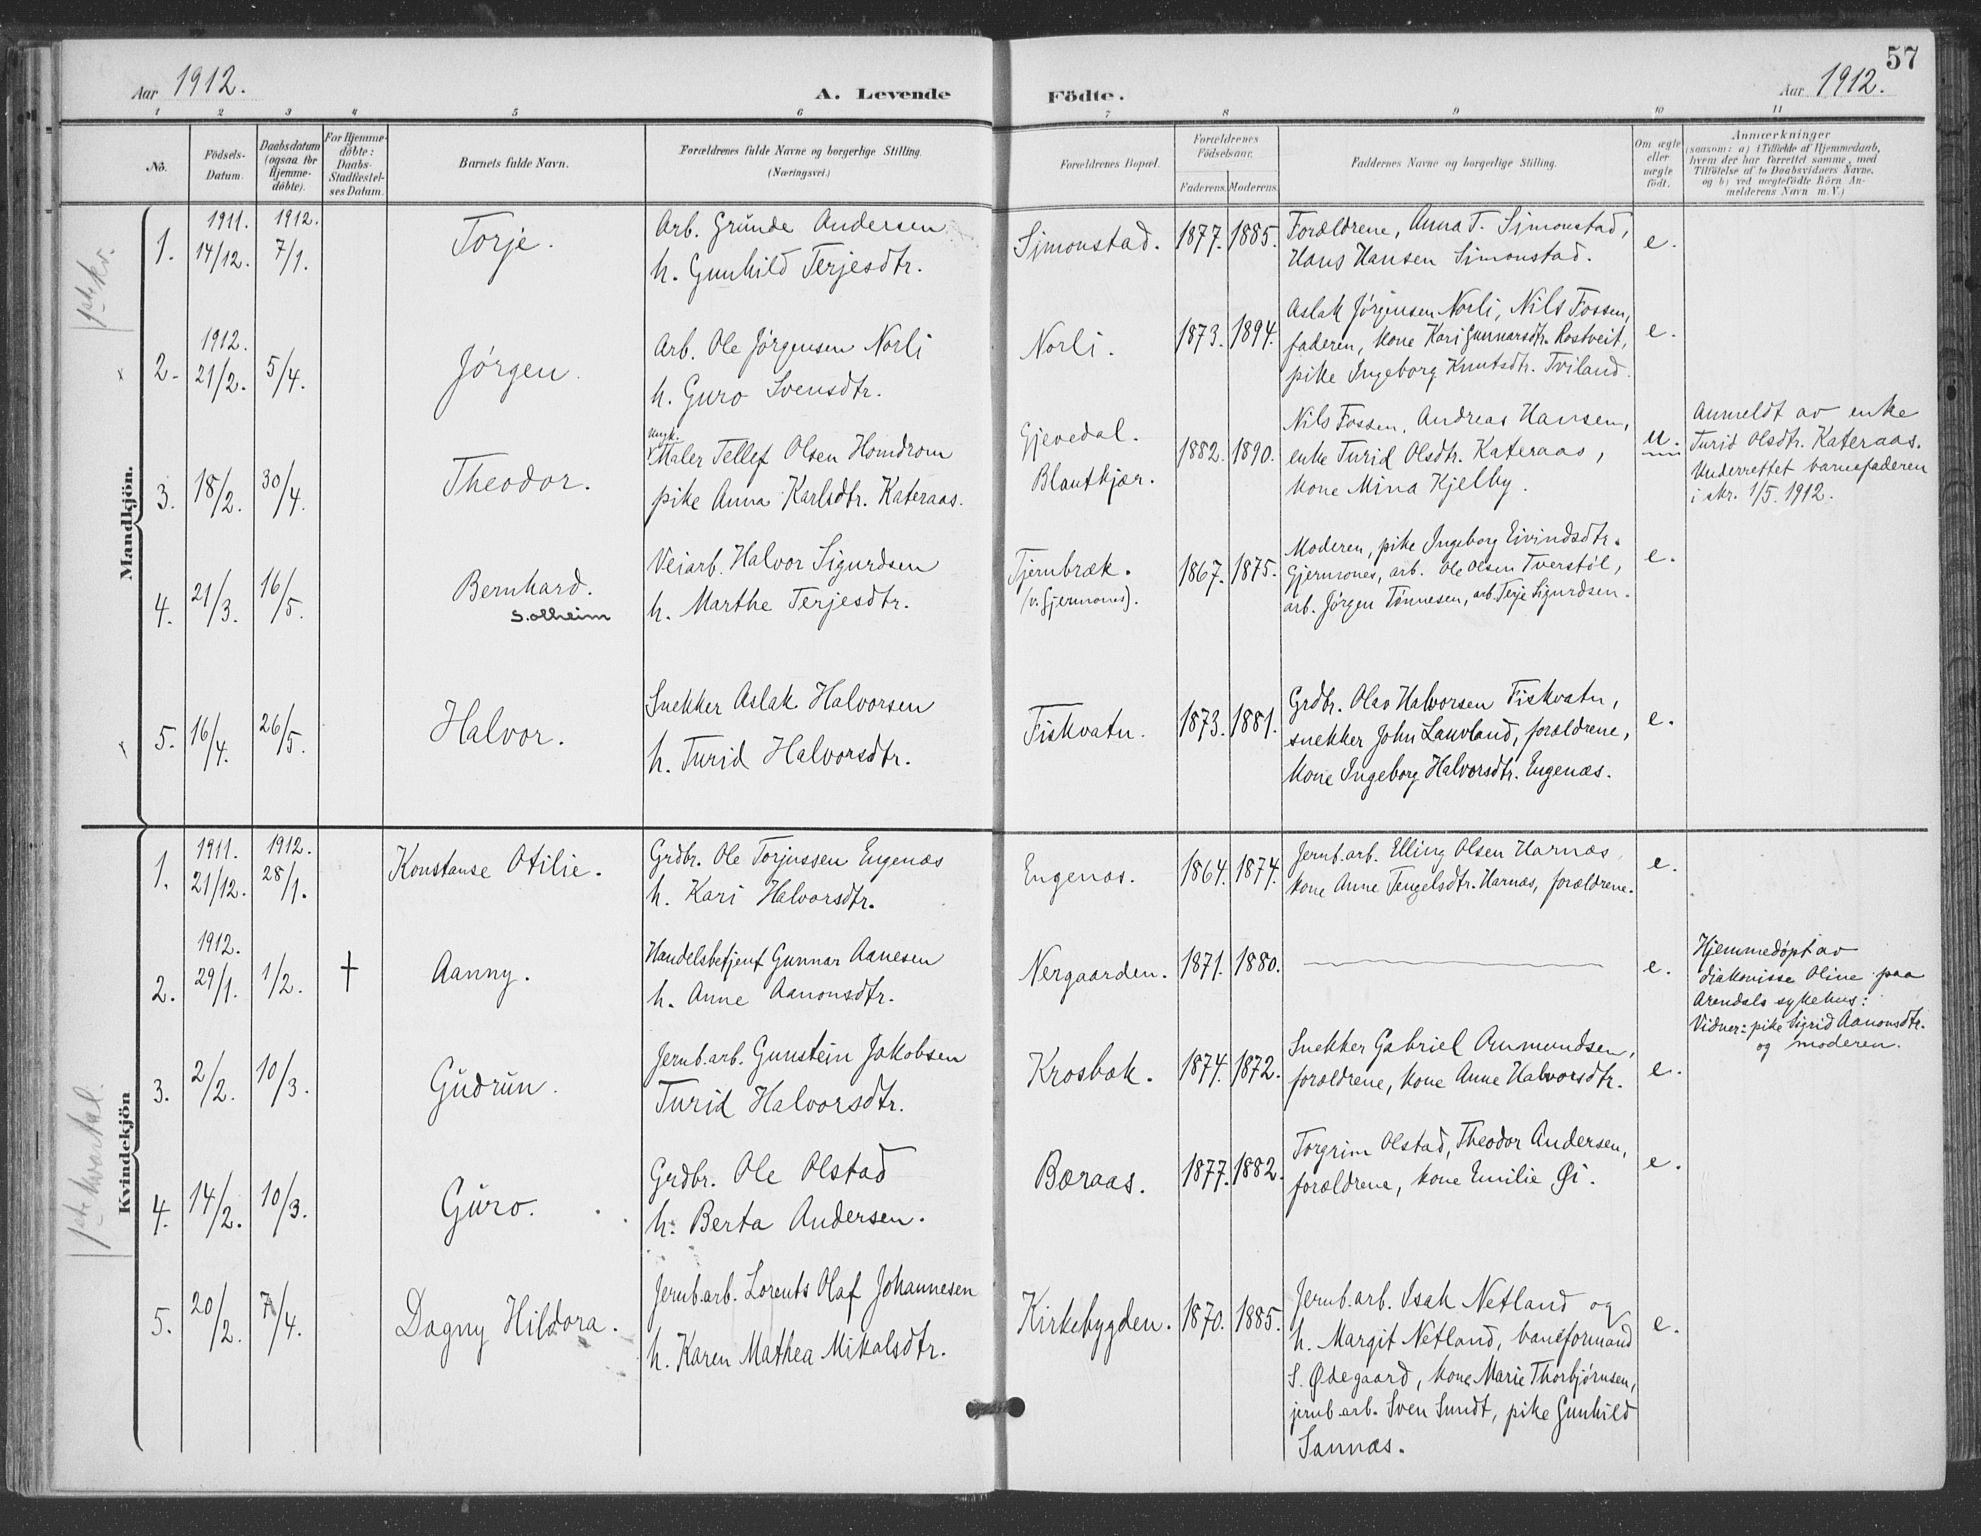 57
Aar 1912.
A. Levende
Födte.
Aar 1912.
1 2 3 4 5 6 7 8 9 10 11
No.
Födsels-
Datum.
Daabsdatum
(ogsaa for
Hjemme-
döbte).
For Hjemme-
döbte:
Daabs-
Stadfæstel-
ses Datum.
Barnets fulde Navn.
Forældrenes fulde Navne og borgerlige Stilling.
(Næringsvei.)
Forældrenes Bopæl.
Forældrenes
Födselsaar.
Faderens. Moderens.
Faddernes Navne og borgerlige Stilling.
Om ægte
eller
uægte
födt.
Anmærkninger
(saasom: a) i Tilfælde af Hjemmedaab,
hvem der har forrettet samme, med
Tilföielse af to Daabsvidners Navne,
og b) ved uægtefödte Börn An-
melderens Navn m. V.)
1ste kv.
Mandkjön.
1.
1911.
14/12.
1912.
7/1.
Torje.
Arb. Grunde Andersen
h. Gunhild Terjesdtr.
Simonstad.
1877. 1885.
Forældrene, Anna T. Simonstad,
Hans Hansen Simonstad.
e.
2.
1912.
21/2.
5/4.
Jørgen.
Arb. Ole Jørgensen Norli
h. Guro Svensdtr.
Norli.
1873. 1894.
Aslak Jørgensen Norli, Nils Fossen,
faderen, kone Kari Gunnarsdtr. Rostveit,
pike Ingeborg Knutsdtr. Tviland.
e.
3.
18/2.
30/4.
Theodor.
Ungk.
Maler Tellef Olsen Homdrom
pike Anna Karlsdtr. Kateraas.
Gjevedal.
Blautkjær.
1882. 1890.
Nils Fossen, Andreas Hansen,
enke Turid Olsdtr. Kateraas,
kone Mina Kjelby.
u.
Anmeldt av enke
Turid Olsdtr. Kateraas.
Underrettet barnefaderen
i skr. 1/5. 1912.
4.
21/3.
16/5.
Bernhard.
Solheim
Veiarb. Halvor Sigurdsen
h. Marthe Terjesdtr.
Tjernbræk.
(v. Gjermones).
1867. 1875.
Moderen, pike Ingeborg Eivindsdtr.
Gjermones, arb. Ole Olsen Tverstøl,
arb. Jörgen Tønnesen, arb. Terje Sigurdsen.
e.
5.
16/4.
26/5.
Halvor.
Snekker Aslak Halvorsen
h. Turid Halvorsdtr.
Fiskvatn.
1873. 1881.
Grdbr. Olav Halvorsen Fiskvatn,
snekker John Lauvland, forældrene,
kone Ingeborg Halvorsdtr. Engenæs.
e.
1ste kvartal.
Kvindekjön
1.
1911.
21/12.
1912.
28/1.
Konstanse Otilie.
Grdbr. Ole Torjussen Engenæs
h. Kari Halvorsdtr.
Engenæs.
1864. 1874.
Jernb.arb. Elling Olsen Harnæs,
kone Anne Tengelsdtr. Harnæs, forældrene.
e.
2.
1912.
29/1.
1/2.
†
Aanny.
Handelsbetjent Gunnar Aanesen
h. Anne Aanonsdtr.
Nergaarden.
1871. 1880.
e.
Hjemmedøpt av
diakonisse Oline paa
Arendals sykehus:
Vidner: pike Sigrid Aanonsdtr.
og moderen.
3.
2/2.
10/3.
Gudrun.
Jernb.arb. Gunstein Jakobsen
Turid Halvorsdtr.
Krosbæk.
1874. 1872.
Snekker Gabriel Ommundsen,
forældrene, kone Anne Halvorsdtr.
e.
4.
14/2.
10/3.
Guro.
Grdbr. Ole Olstad
h. Berta Andersen.
Børaas.
1877. 1882.
Torgrim Olstad, Theodor Andersen,
forældrene, kone Emilie Øi.
e.
5.
20/2.
7/4.
Dagny Hildora.
Jernb.arb. Lorents Olaf Johannesen
h. Karen Mathea Mikalsdtr.
Kirkebygden.
1870. 1885.
Jernb.arb. Isak Netland og
h. Margit Netland, baneformand
S. Ødegaard, kone Marie Thorbjørnsen,
jernb.arb. Sven Sundt, pike Gunhild
Sannæs.
e.